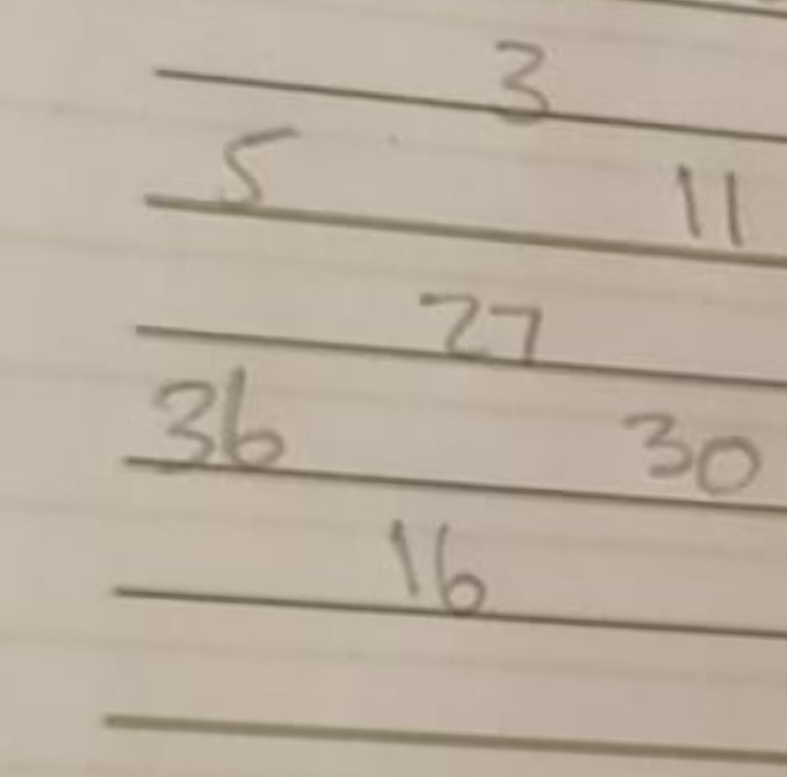 3
5 11
27
36 30
16